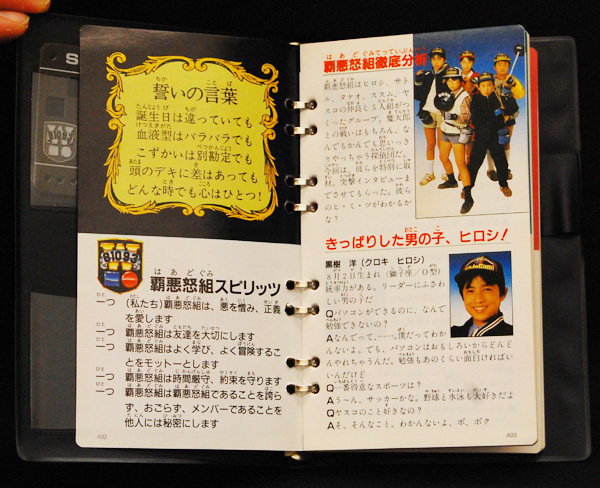 誓いの言葉
誕生日は違っていても
血液型はバラバラでも
こずかいは別勘定でも
頭のデキに差はあっても
どんな時でも心はひとつ!
81093
覇悪怒組スピリッツ
一つ (私たち)覇悪怒組は、悪を憎み、正義
を愛します
一つ 覇悪怒組は友達を大切にします
一つ 覇悪怒組はよく学び、よく冒険するこ
とをモットーとします
一つ 覇悪怒組は時間厳守、約束を守ります
一つ 覇悪怒組は覇悪怒組であることを誇ら
ず、おごらず、メンバーであることを
他人には秘密にします
A02
覇悪怒組徹底分析
覇悪怒組はヒロシ、サト
ル、タケオ、ススム、ヤ
スコの仲良し5人組がつ
くったグループ。魔天郎
との戦いはもちろん、な
んでもかんでも思いっき
りやっちゃう探偵団だ。
今回は、彼らを特別に取
材、突撃インタビューま
でさせてもらった。彼ら
のヒ・ミ・ツがわかるか
な?
きっぱりした男の子、ヒロシ!
黒樹 洋(クロキ ヒロシ)
8月2日生まれ(獅子座/O型)
統率力がある。リーダーにふさわ
しい男の子だ
Qパソコンができるのに、なんで
勉強できないの?
Aなんでって……、僕だってわか
んないよ。でも、パソコンはおもしろいからどんど
んやれちゃうんだ。勉強もあのくらい面白ければい
いんだけど
Q一番得意なスポーツは?
Aう〜ん、サッカーかな。野球と水泳も大好きだよ
Qヤスコのこと好きなの?
Aそ、そんなこと。わかんないよ、ボ、ボク
A03